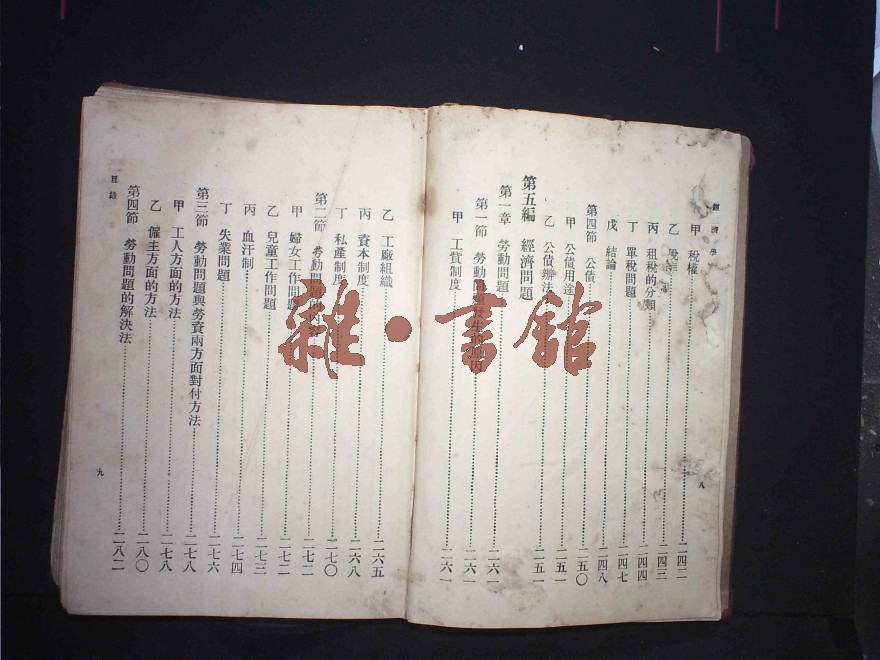 經濟學
甲 稅權 二四二
乙 稅 二四三
丙 租稅的分類 二四四
丁 單稅問題 二四七
戊 結論 二四八
第四節 公債 二五〇
甲 公債用途 二五一
乙 公債辦法 二五一
第五編 經濟問題
第一章 勞動問題 二六一
第一節 勞動問題發生的原因 二六一
甲 工資制度 二六一
八
乙 工廠組織 二六五
丙 資本制度 二六八
丁 私產制度 二七〇
第二節 勞動問題的內容 二七二
甲 婦女工作問題 二七二
乙 兒童工作問題 二七三
丙 血汗制 二七四
丁 失業問題 二七六
第三節 勞動問題與勞資兩方面對付方法 二七八
甲 工人方面的方法 二七八
乙 僱主方面的方法 二八〇
第四節 勞動問題的解決法 二八二
目錄
九
雜·書館